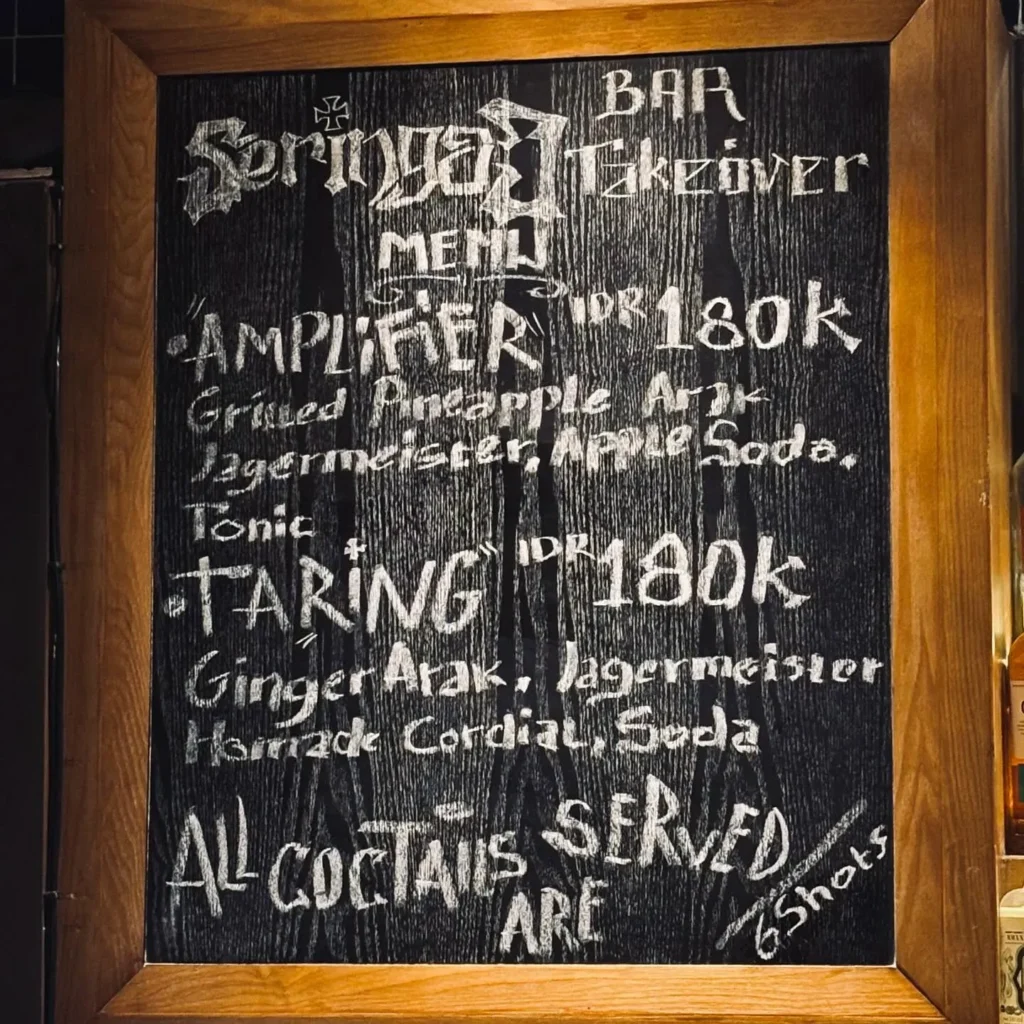 SeringaI BAR
Takeover
MENU
• "AMPLiFiER" IDR 180K
Grilled Pineapple Arak
Jagermeister, Apple Soda,
Tonic
• "TARiNG" IDR 180K
Ginger Arak, Jagermeister
Homade Cordial, Soda
ALL COCTAILS SERVED
ARE
/6Shots